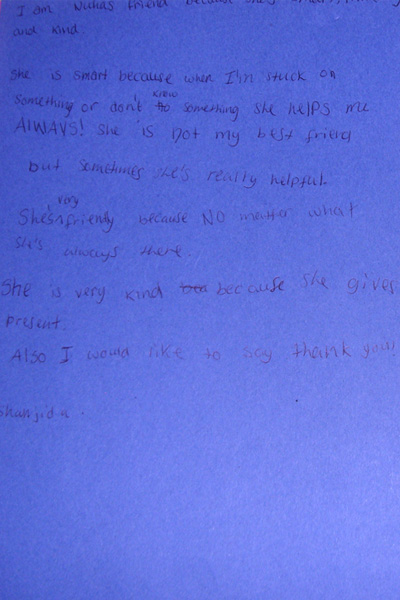 I am friend because she's
and kind.
She is smart because when I'm stuck on
know
something or don't to something she helps me
ALWAYS! She is not my best friend
but sometimes she's really helpful.
very
She's friendly because NO matter what
she's always there.
She is very kind because she gives
present.
Also I would like to say thank you!